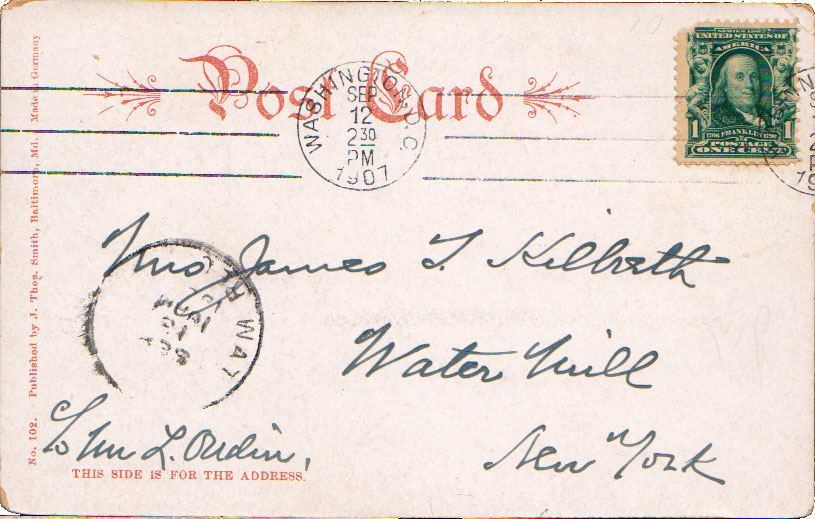 Post Card
WASHINGTON, D.C.
SEP
12
2 30
PM
1907
SERIES 1902
UNITED STATES OF
AMERICA
1 1
1706 FRANKLIN 1790
POSTAGE
ONE CENT
Mrs James T. Kilbreth
Water Mill
New York
WAT
c/o Mr L.
THIS SIDE IS FOR THE ADDRESS.
No. 102. Published by J. Thos. Smith, Baltimore, Md. Made in Germany